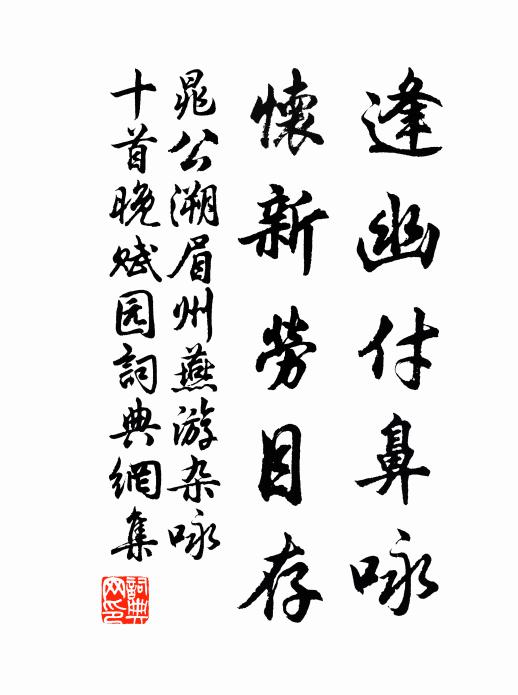 逢幽付鼻咏
懷新勞目存
晁公溯眉州燕游杂咏
十首晚赋园詞典網集
詞典网印